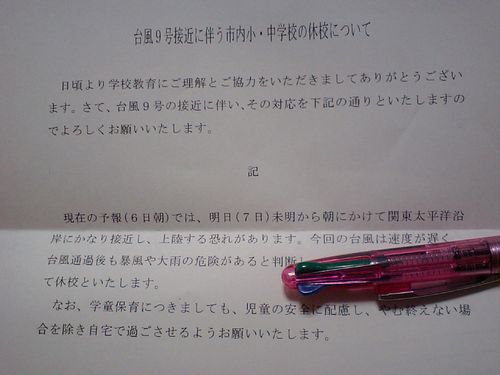 台風９号接近に伴う市内小・中学校の休校について
日頃より学校教育にご理解とご協力をいただきましてありがとうござい
ます。さて、台風９号の接近に伴い、その対応を下記の通りといたしますの
でよろしくお願いいたします。
記
現在の予報(６日朝)では、明日(７日)未明から朝にかけて関東太平洋沿
岸にかなり接近し、上陸する恐れがあります。今回の台風は速度が遅く、
台風通過後も暴風や大雨の危険があると判断し
て休校といたします。
なお、学童保育につきましても、児童の安全に配慮し、やむ終えない場
合を除き自宅で過ごさせるようお願いいたします。